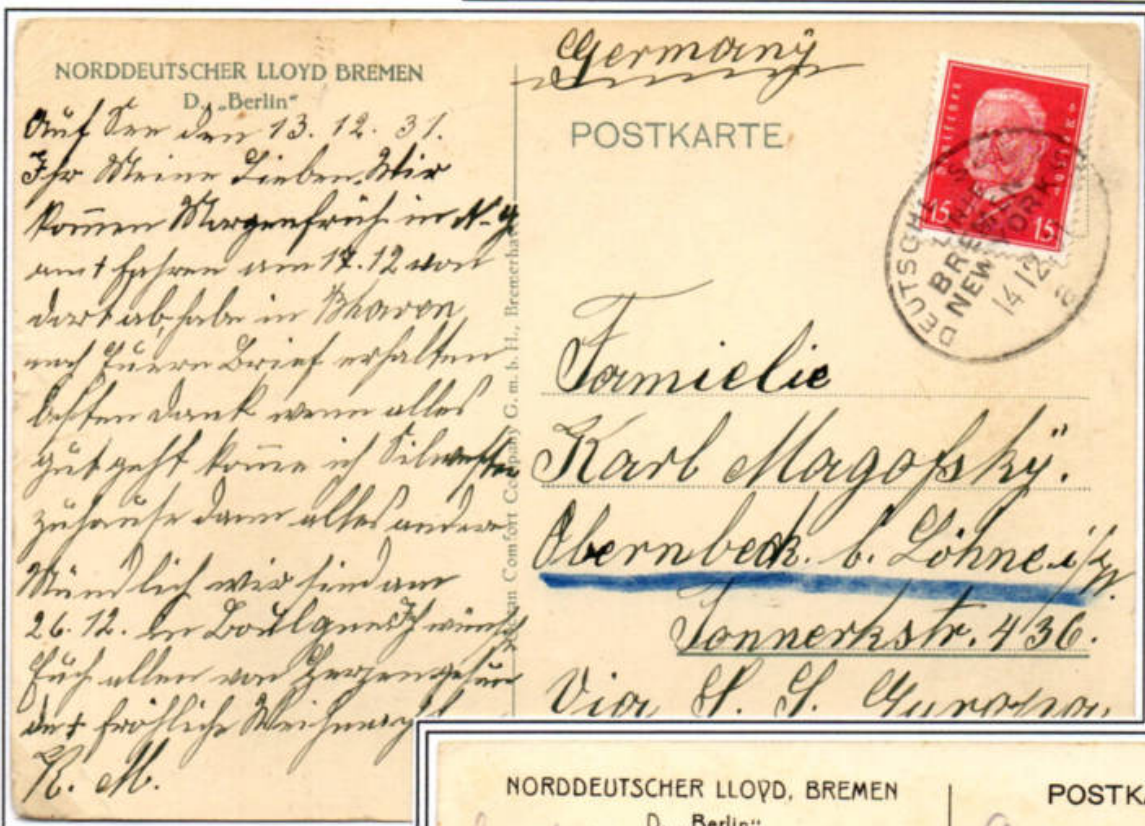 NORDDEUTSCHER LLOYD BREMEN
D. „Berlin"
Auf See den 13. 12. 31.
Ihr Meine Lieben. Wir
kommen Morgenfrüh in N. Y.
an + fahren am 17. 12 von
dort ab, habe in Bhaven
noch Euern Brief erhalten
besten Dank wenn alles
gut geht komme ich Silvester
zuhause dann alles andere
Mündlich wir sind am
26. 12. in Ich wünsche
Euch allen von Herzen
fröhliche
K. M.
Ocean Comfort Company G. m. b. H., Bremerhaven
Germany
POSTKARTE
15 15
DEUTSCHE
BREMEN
NEW YORK
14 12
Famielie
Karl Magofsky.
Obernbeck. b. Löhne i/W.
436.
Via S. S. Europa.
NORDDEUTSCHER LLOYD, BREMEN
D. „Berlin"
POSTK